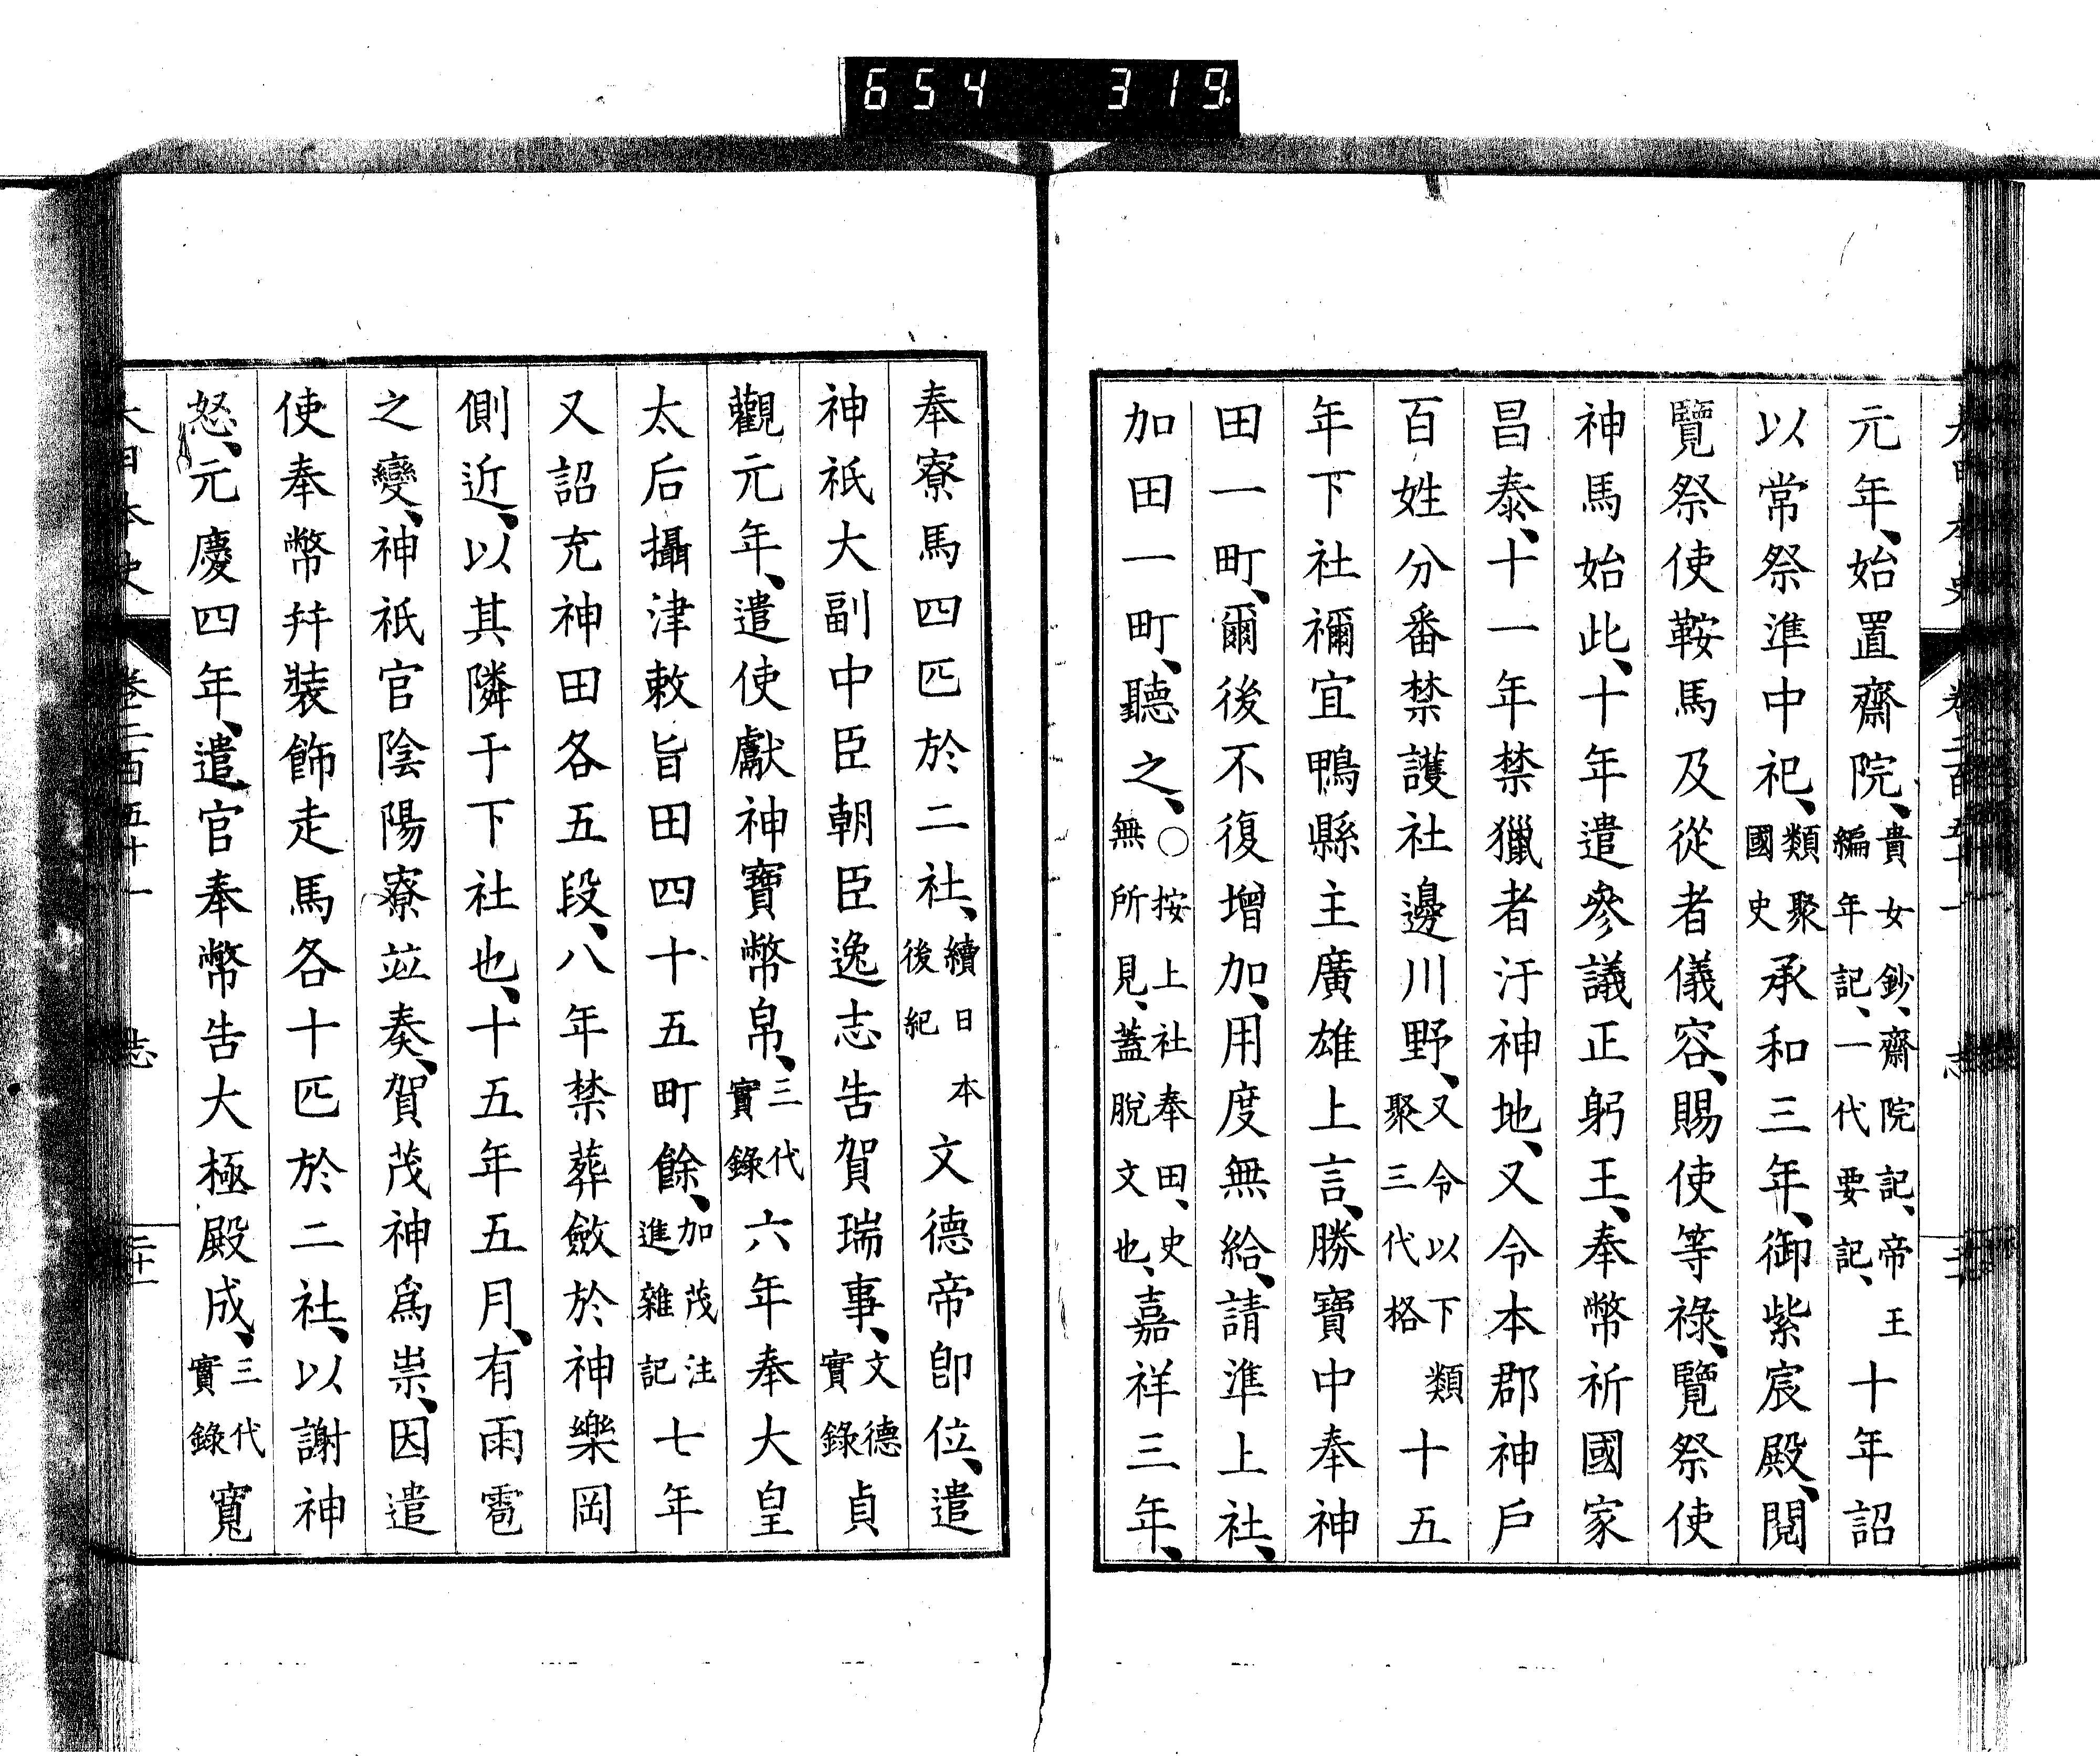 654 319
元年、始置齋院、貴女鈔、齋院記、帝王編年記、一代要記、十年詔
以常祭準中祀、類聚國史承和三年、御紫宸殿、閱
覽祭使鞍馬及從者儀容、賜使等祿、覽祭使
神馬始此、十年遣參議正躬王、奉幣祈國家
昌泰、十一年禁獵者汙神地、又令本郡神戶
百姓分番禁護社邊川野、又令以下類聚三代格十五
年下社禰宜鴨縣主廣雄上言、勝寶中奉神
田一町、爾後不復增加、用度無給、請準上社、
加田一町、聽之、○按上社奉田、史無所見、蓋脫文也、嘉祥三年、
奉寮馬四匹於二社、續日本後紀文德帝卽位、遣
神祇大副中臣朝臣逸志告賀瑞事、文德實錄貞
觀元年、遣使獻神寶幣帛、三代實錄六年奉大皇
太后攝津敕旨田四十五町餘、加茂注進雜記七年
又詔充神田各五段、八年禁葬斂於神樂岡
側近、以其隣于下社也、十五年五月、有雨雹
之變、神祇官陰陽寮竝奏、賀茂神爲祟、因遣
使奉幣幷裝飾走馬各十匹於二社、以謝神
怒、元慶四年、遣官奉幣告大極殿成、三代實錄寬
大日本史 卷二百五十一 志 二十一